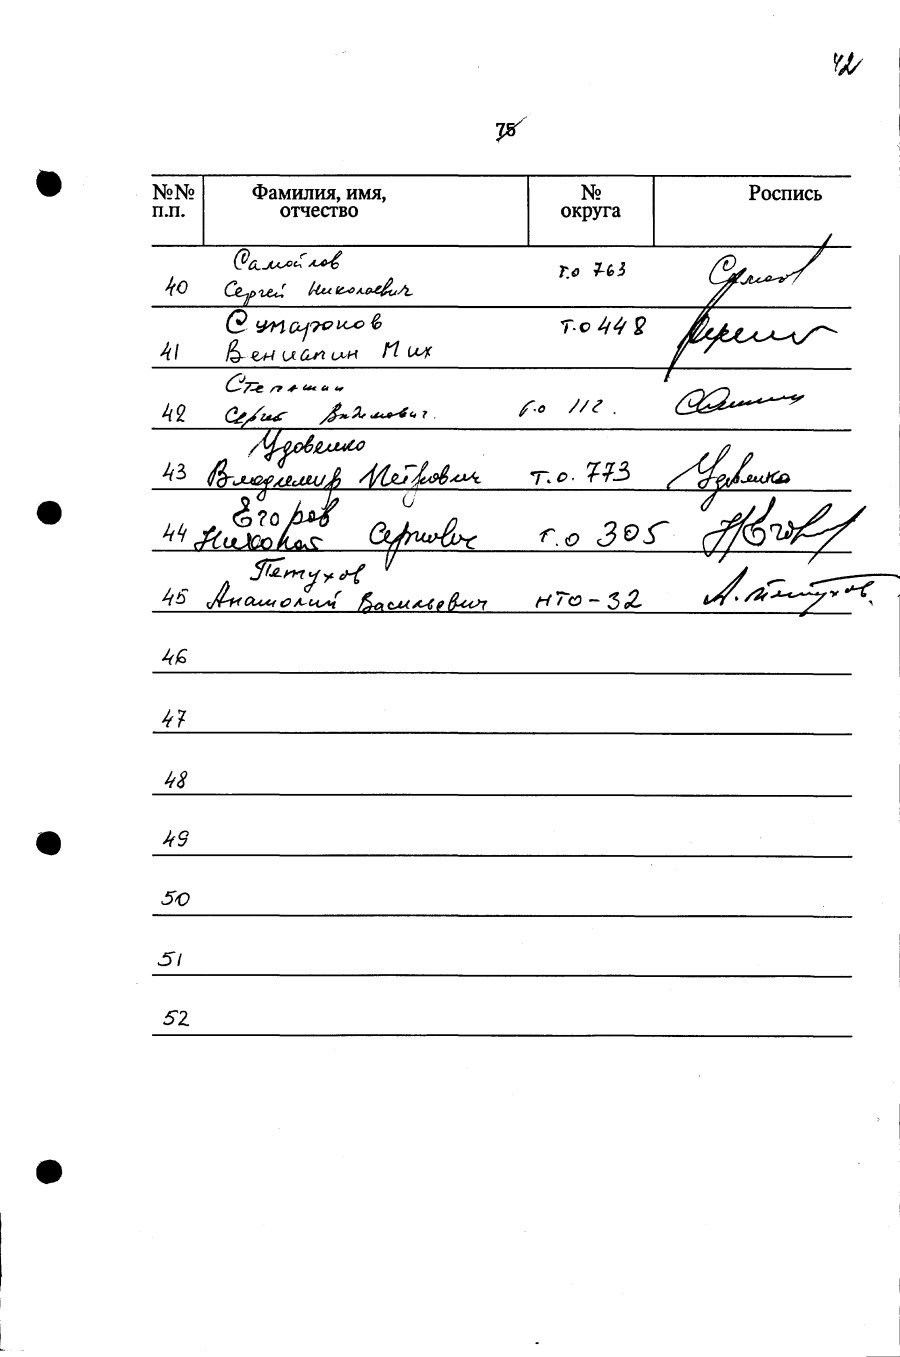 42
75
№№ п.п.
Фамилия, имя, отчество
№ округа
Роспись
Самойлов
40 Сергей Николаевич
т.о 763
Сумароков
41 Вениамин Мих
т.о 448
Степашин
42 Сергей Вадимович.
т.о 112.
Удовенко
43 Владимир Петрович
т.о. 773
Удовенко
Егоров
44 Николай Сергеевич
т.о 305
Н Егоров
Петухов
45 Анатолий Васильевич
НТО-32
А. Петухов.
46
47
48
49
50
51
52